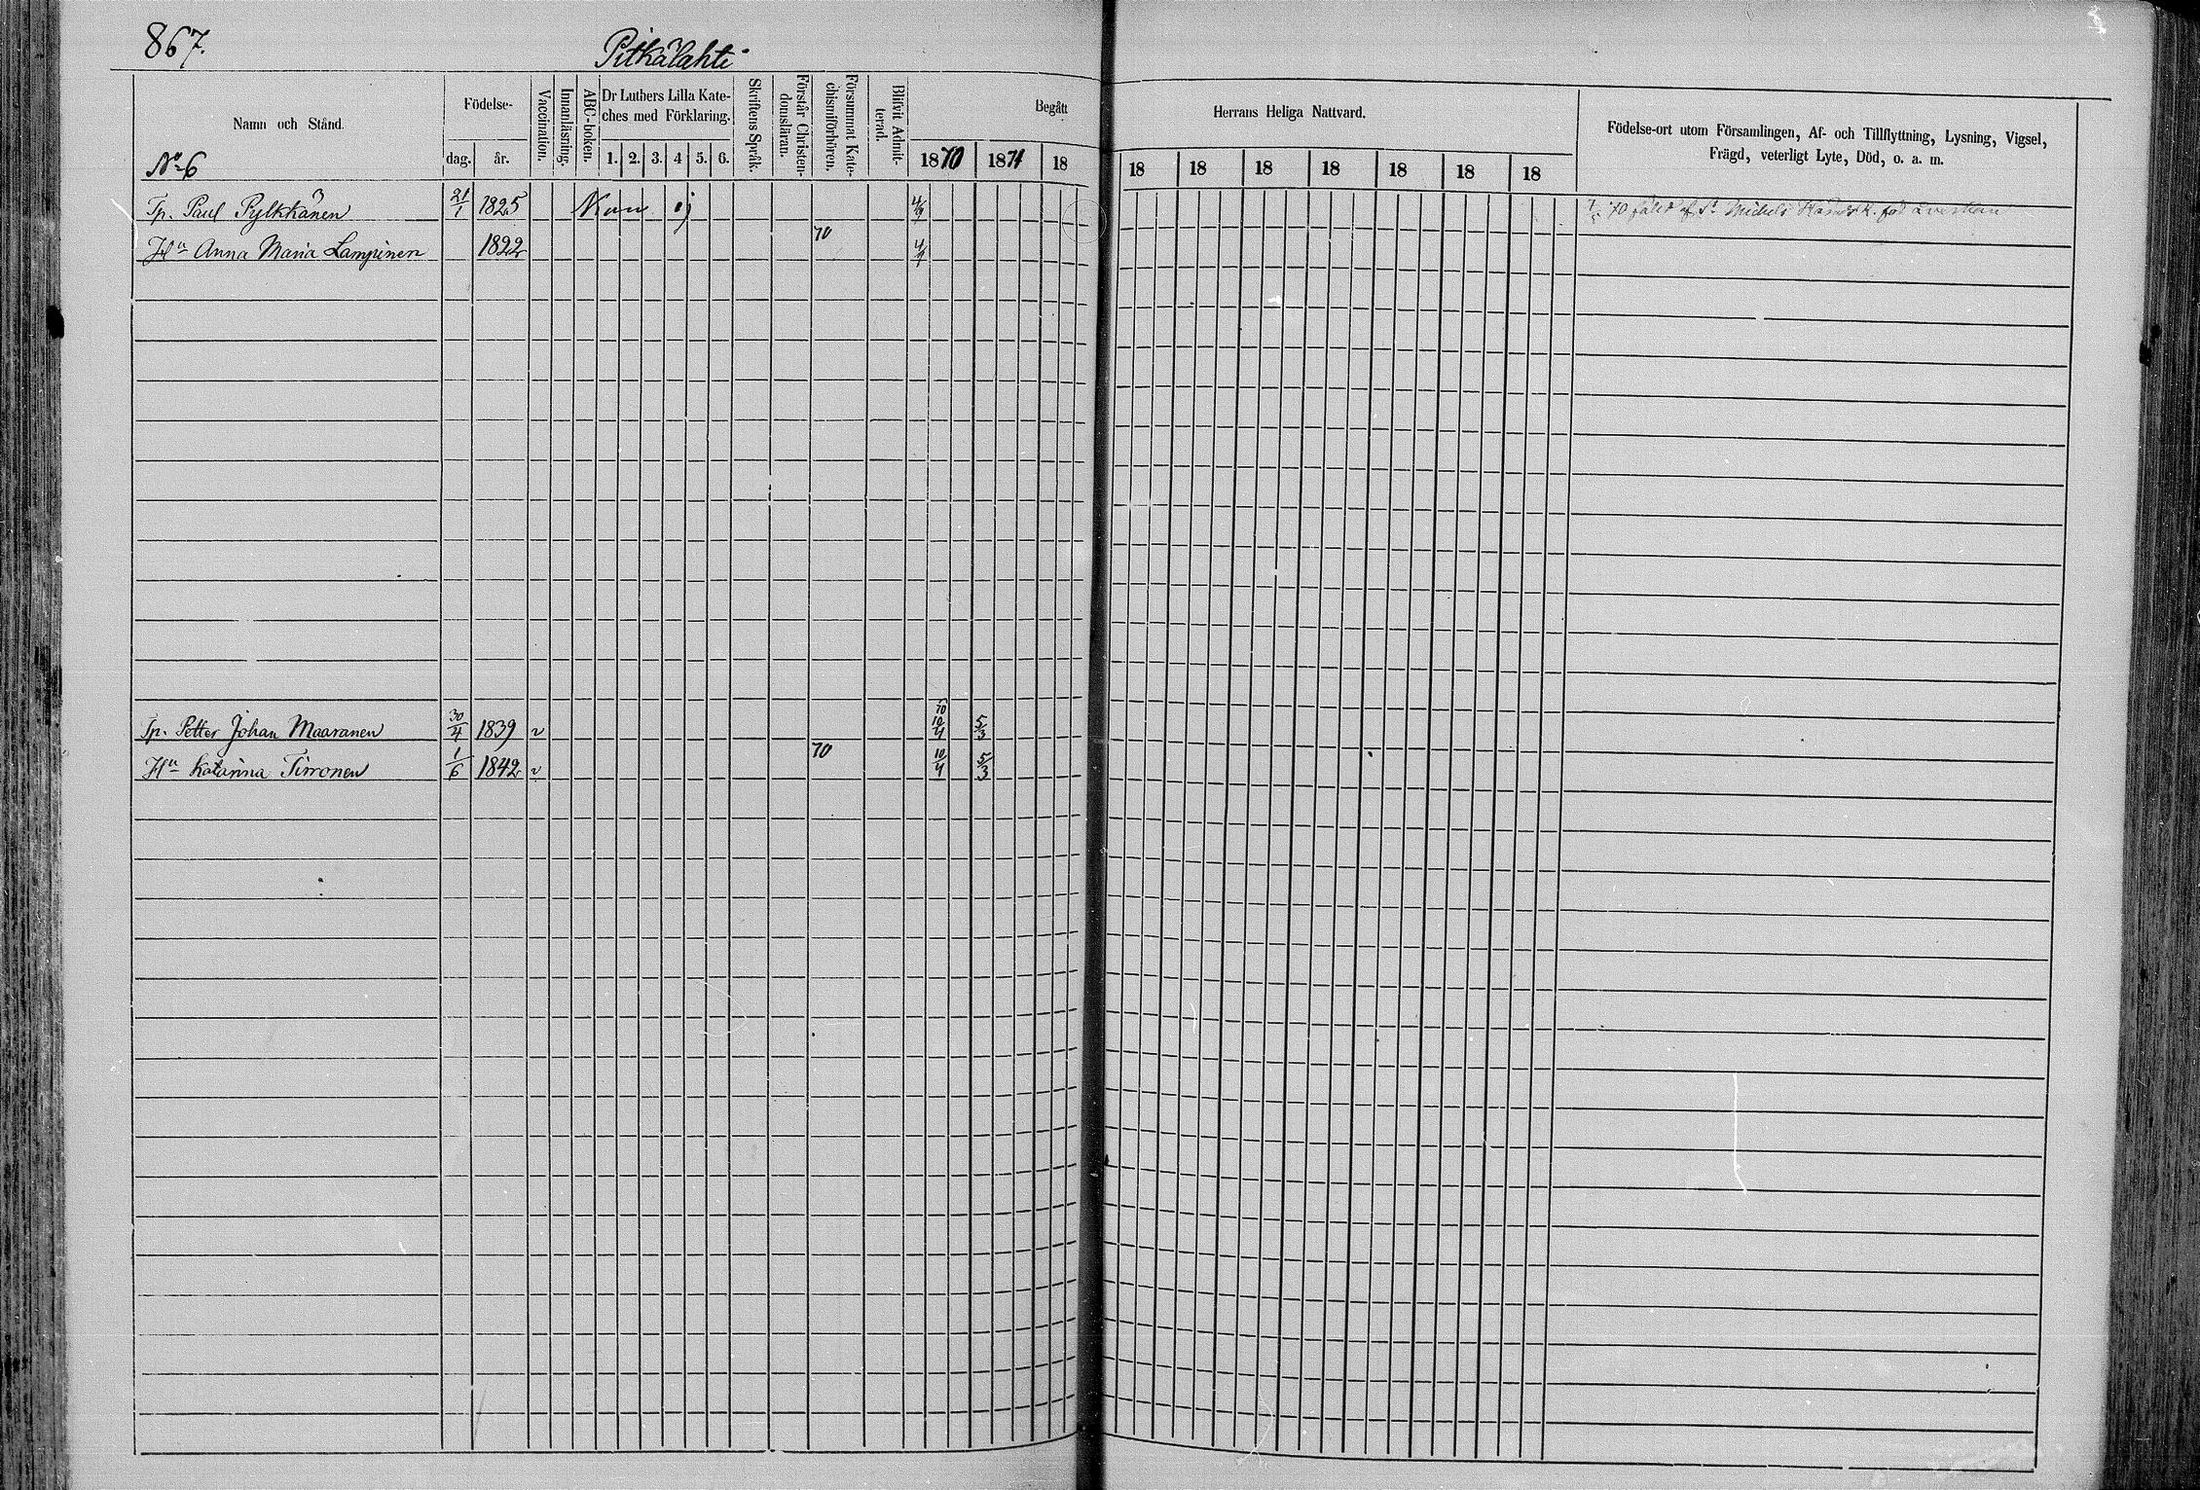 867.
Pitkälahti
Namn och Stånd.
Födelse-
dag.
år.
Vaccination.
Innanläsning.
ABC-boken.
Dr Luthers Lilla Kate-
ches med Förklaring.
1. 2. 3. 4 5. 6.
Skriftens Språk.
Förstår Christen-
domsläran.
Försummat Kate-
chismiförhören.
Blifvit Admit-
terad.
Begått
Herrans Heliga Nattvard.
1870 1871 18 18 18 18 18 18 18 18
Födelse-ort utom Församlingen, Af- och Tillflyttning, Lysning, Vigsel,
Frägd, veterligt Lyte, Död, o. a. m.
No 6
Tp. Paul Pylkkänen 21/1 1825
70 St Michels
Hu Anna Maria Lampinen 1822 70
Tp. Petter Johan Maaranen 30/4 1839 v 70 10/4 5/3
Hu Katarina Tirronen 1/6 1842 v 70 10/4 5/3